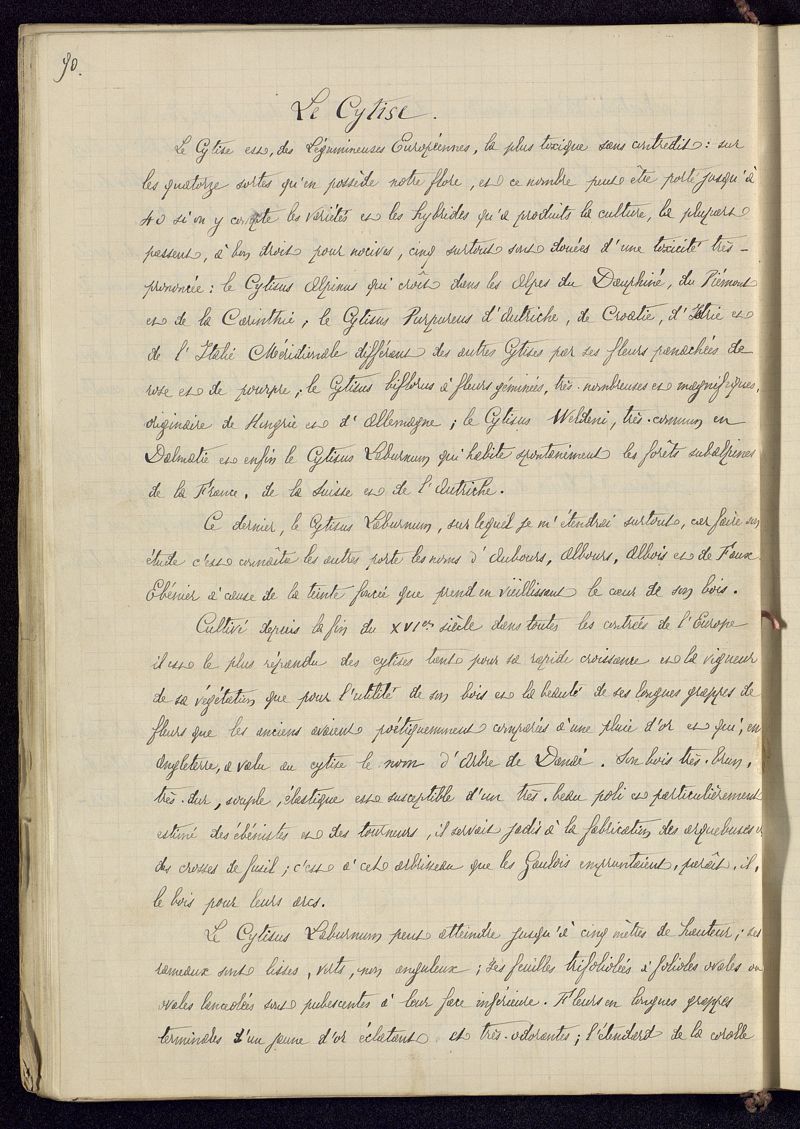 90.
Le Cytise.
Le Cytise est, des Légumineuses Européennes, la plus toxique sans contredit : sur
les quatorze sortes qu'en possède notre flore, et ce nombre peut être porté jusqu'à
40 si on y compte les variétés et les hybrides qu'a produits la culture, la plupart
passent, à bon droit pour nocives, cinq surtout sont douées d'une toxicité très-
prononcée : le Cytisus Alpinus qui croît dans les Alpes du Dauphiné, du Piémont
et de la Carinthie, le Cytisus Purpureus d'Autriche, de Croatie, d'Istrie et
de l'Italie Méridionale différant des autres Cytises par ses fleurs panachées de
rose et de pourpre ; le Cytisus biflorus à fleurs géminées, très-nombreuses et magnifiques,
originaire de Hongrie et d'Allemagne ; le Cytisus Weldeni, très-commun en
Dalmatie et enfin le Cytisus Laburnum qui habite spontanément les forêts subalpines
de la France, de la Suisse et de l'Autriche.
Ce dernier, le Cytisus Laburnum, sur lequel je m'étendrai surtout, car faire son
étude c'est connaître les autres porte les noms d'Aubours, Albours, Albois et de Faux
Ebénier à cause de la teinte foncée que prend en vieillissant le cœur de son bois.
Cultivé depuis la fin du XVIe siècle dans toutes les contrées de l'Europe
il est le plus répandu des cytises tant pour sa rapide croissance et la vigueur
de sa végétation que pour l'utilité de son bois et la beauté de ses longues grappes de
fleurs que les anciens avaient poétiquemment comparées à une pluie d'or et qui, en
Angleterre, a valu au cytise le nom d'Arbre de Danaé. Son bois très-brun,
très-dur, souple, élastique est susceptible d'un très-beau poli et particulièrement
estimé des ébénistes et des tourneurs, il servait jadis à la fabrication des arquebuses et
des crosses de fusil ; c'est à cet arbrisseau que les Gaulois empruntaient, paraît-il,
le bois pour leurs arcs.
Le Cytisus Laburnum peut atteindre jusqu'à cinq mètres de hauteur ; ses
rameaux sont lisses, verts, non anguleux ; ses feuilles trifoliolées à folioles ovales ou
ovales lancéolés sont pubescentes à leur face inférieure. Fleurs en longues grappes
terminales d'un jaune d'or éclatant et très-odorantes ; l'étendard de la corolle